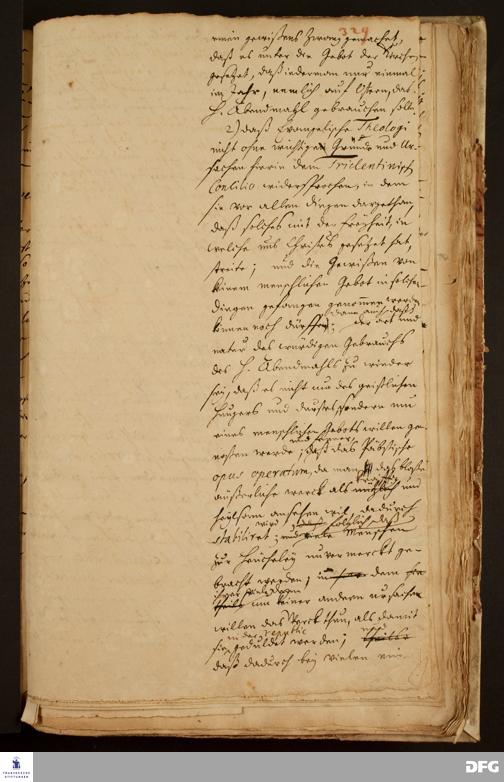 329
einen gewißens Zwang gemachet,
daß es unter die Gebot der Kirche
gesetzet, daß iederman nur einmal
im Jahr, nemlich auf Ostern, das
H. Abendmahl gebrauchen solte
2) daß Evangelische Theologi
nicht ohne wichtigen Gründe und Ur-
sachen hierin dem Tridentinischen
Concilio widersprochen, in dem
sie vor allen dingen dargethan,
daß solches mit der freyheit, in
welche uns Christus gesetzet hat,
streite; und die Gewißen von
keinem menschlichen Gebot in solchen
dingen gefangen genommen werden
können noch dürffen; der art und
natur des würdigen Gebrauchs
des H. Abendmahls zu wieder
sey, daß es nicht nur des geistlichen
hungers und durstes, sondern um
eines menschlichen Gebots willen ge-
noßen werde; und ferner daß das Päbstische
opus operatum, da man das bloße
äußerliche werck als und
heylsam ansehen wil, dadurch
stabiliret wird; folglich daß Menschen
zur heucheley unvermerckt ge-
bracht werden; in dem
um keiner andern ursachen
willen das Werck thun, als damit
sie in der geduldet werden;
daß dadurch bey vielen ein
FRANCKESCHE STIFTUNGEN
DFG